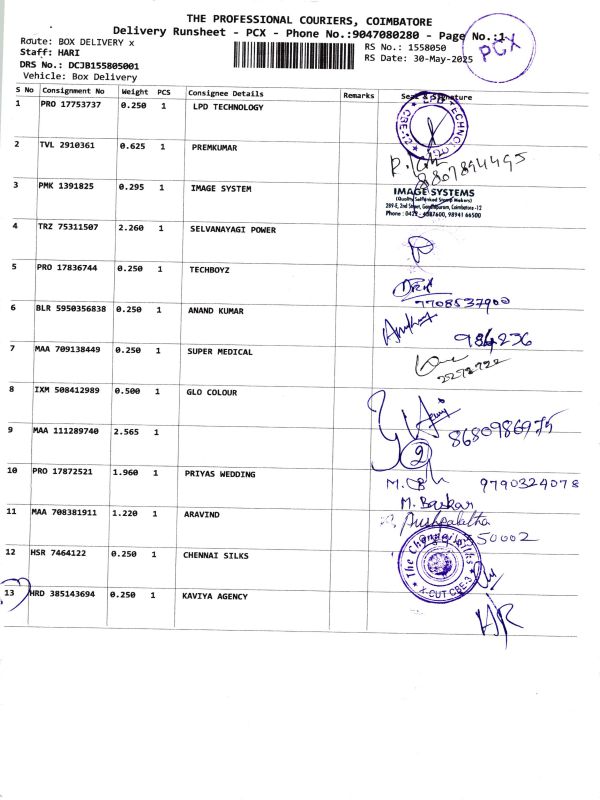 THE PROFESSIONAL COURIERS, COIMBATORE
Delivery Runsheet - PCX - Phone No.:9047080280 - Page No.:1
PCX
Route: BOX DELIVERY x
RS No.: 1558050
Staff: HARI
RS Date: 30-May-2025
DRS No.: DCJB155805001
Vehicle: Box Delivery
S No Consignment No Weight PCS Consignee Details Remarks Seal & Signature
1 PRO 17753737 0.250 1 LPD TECHNOLOGY
LPD TECHNOLOGY
2 TVL 2910361 0.625 1 PREMKUMAR
8807894495
3 PMK 1391825 0.295 1 IMAGE SYSTEM
IMAGE SYSTEMS
(Quality Selfinked Stamp Makers)
289-E, 2nd Street, Gandhipuram, Coimbatore -12
Phone : 0422 - 4387600, 98941 66500
4 TRZ 75311507 2.260 1 SELVANAYAGI POWER
5 PRO 17836744 0.250 1 TECHBOYZ
7708537900
6 BLR 5950356838 0.250 1 ANAND KUMAR
984236
7 MAA 709138449 0.250 1 SUPER MEDICAL
8 IXM 508412989 0.500 1 GLO COLOUR
8680986975
9 MAA 111289740 2.565 1
2
10 PRO 17872521 1.960 1 PRIYAS WEDDING
9790324078
M. Baskar
11 MAA 708381911 1.220 1 ARAVIND
Pushpalatha
50002
12 HSR 7464122 0.250 1 CHENNAI SILKS
The Chennai Silks
X-CUT CBE-3
13 HRD 385143694 0.250 1 KAVIYA AGENCY